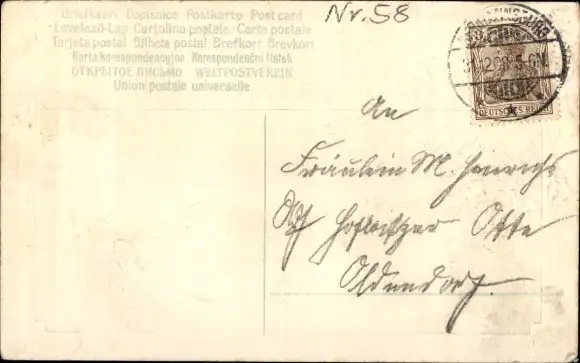 Nr. 58
Briefkaart Dopisnice Postkarte Post card
Levelező-Lap Cartolina postale Carte postale
Tarjeta postal Bilhete postal Brefkort Brevkort
Karta korespondencyjna Korespondenční lístek
ОТКРЫТОЕ ПИСЬМО WELTPOSTVEREIN
Union postale universelle
DEUTSCHES REICH
An
Fräulein M. Henrichs
Hofbesitzer Otte
Oldendorf.